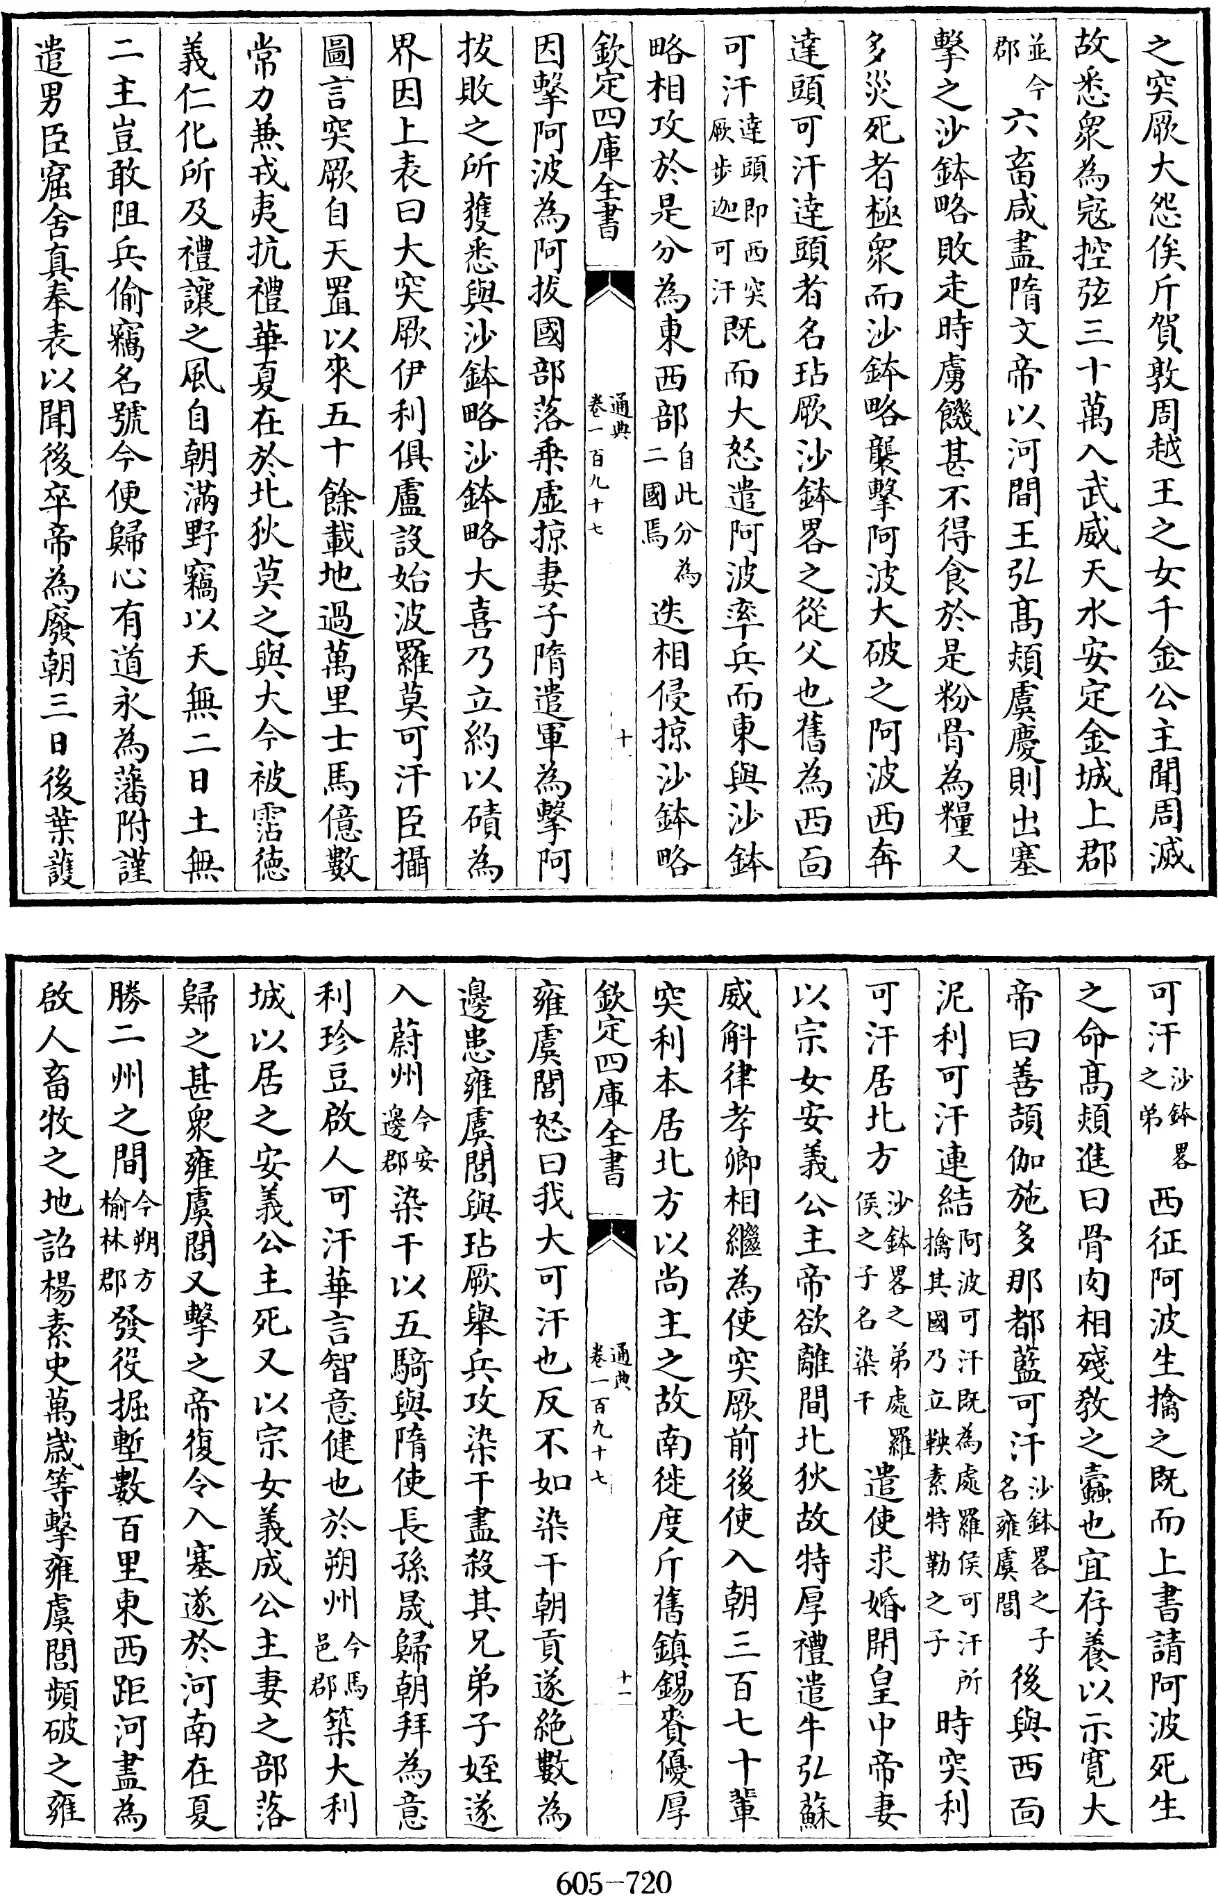 之突厥大怨俟斤賀敦周越王之女千金公主聞周滅
故悉衆為寇控弦三十萬入武威天水安定金城上郡
並今郡六畜咸盡隋文帝以河間王弘高熲虞慶則出塞
擊之沙鉢略敗走時虜饑甚不得食於是粉骨為糧又
多災死者極衆而沙鉢略襲擊阿波大破之阿波西奔
達頭可汗達頭者名玷厥沙鉢畧之從父也舊為西面
可汗達頭即西突厥步迦可汗既而大怒遣阿波率兵而東與沙鉢
略相攻於是分為東西部自此分為二國焉迭相侵掠沙鉢略
欽定四庫全書 通典卷一百九十七 十
因擊阿波為阿拔國部落乗虛掠妻子隋遣軍為擊阿
拔敗之所獲悉與沙鉢略沙鉢略大喜乃立約以磧為
界因上表曰大突厥伊利俱盧設始波羅莫可汗臣攝
圖言突厥自天置以來五十餘載地過萬里士馬億數
常力兼戎夷抗禮華夏在於北狄莫之與大今被霑德
義仁化所及禮讓之風自朝滿野竊以天無二日土無
二主豈敢阻兵偷竊名號今便歸心有道永為藩附謹
遣男臣窟舍真奉表以聞後卒帝為廢朝三日後葉護
可汗沙鉢畧之弟西征阿波生擒之既而上書請阿波死生
之命高熲進曰骨肉相殘教之蠹也宜存養以示寬大
帝曰善頡伽施多那都藍可汗沙鉢畧之子名雍虞閭後與西面
泥利可汗連結阿波可汗既為處羅侯可汗所擒其國乃立鞅素特勒之子時突利
可汗居北方沙鉢畧之弟處羅侯之子名染干遣使求婚開皇中帝妻
以宗女安義公主帝欲離間北狄故特厚禮遣牛弘蘇
威斛律孝卿相繼為使突厥前後使入朝三百七十輩
突利本居北方以尚主之故南徙度斤舊鎮錫賚優厚
欽定四庫全書 通典卷一百九十七 十一
雍虞閭怒曰我大可汗也反不如染干朝貢遂絶數為
邊患雍虞閭與玷厥舉兵攻染干盡殺其兄弟子姪遂
入蔚州今安邊郡染干以五騎與隋使長孫晟歸朝拜為意
利珍豆啟人可汗華言智意健也於朔州今馬邑郡築大利
城以居之安義公主死又以宗女義成公主妻之部落
歸之甚衆雍虞閭又擊之帝復令入塞遂於河南在夏
勝二州之間今朔方榆林郡發役掘塹數百里東西距河盡為
啟人畜牧之地詔楊素史萬歲等擊雍虞閭頻破之雍
605-720